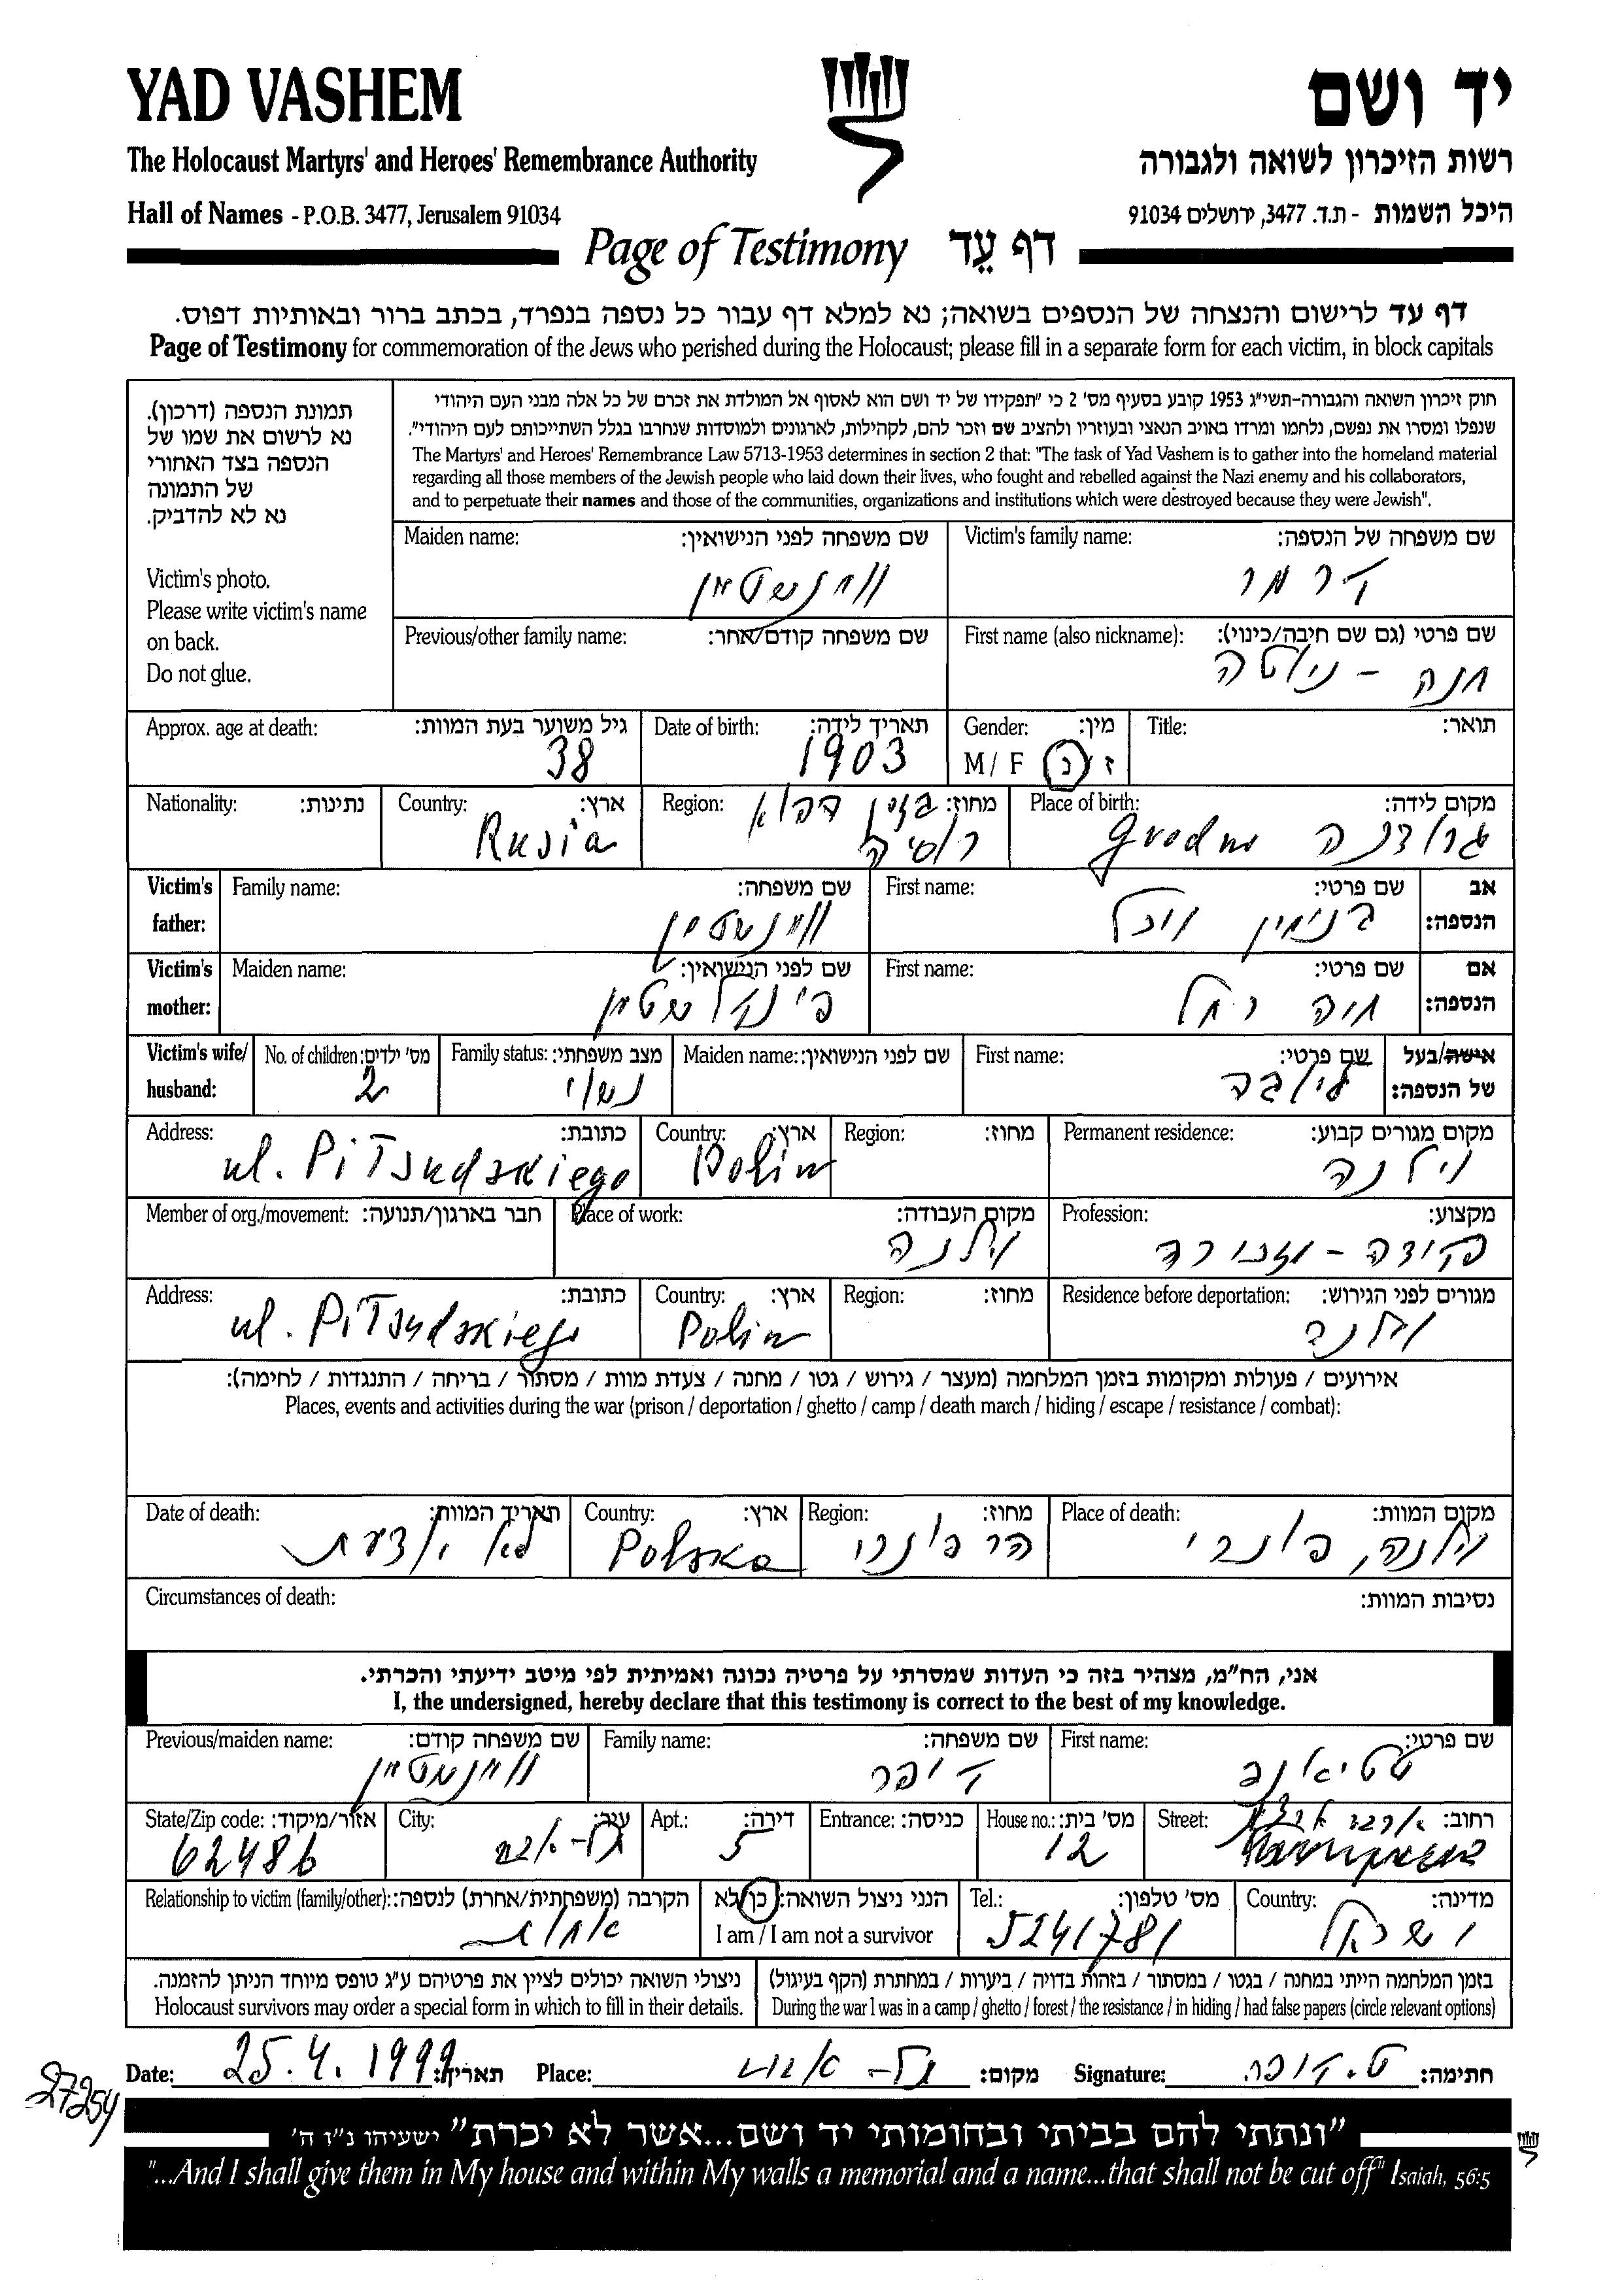 YAD VASHEM
יד ושם
The Holocaust Martyrs' and Heroes' Remembrance Authority
רשות הזיכרון לשואה ולגבורה
Hall of Names - P.O.B. 3477, Jerusalem 91034
היכל השמות - ת.ד. 3477, ירושלים 91034
Page of Testimony דף עֵד
דף עד לרישום והנצחה של הנספים בשואה; נא למלא דף עבור כל נספה בנפרד, בכתב ברור ובאותיות דפוס.
Page of Testimony for commemoration of the Jews who perished during the Holocaust; please fill in a separate form for each victim, in block capitals
תמונת הנספה (דרכון).
נא לרשום את שמו של
הנספה בצד האחורי
של התמונה
נא לא להדביק.
Victim's photo.
Please write victim's name
on back.
Do not glue.
חוק זיכרון השואה והגבורה-תשי"ג 1953 קובע בסעיף מס' 2 כי "תפקידו של יד ושם הוא לאסוף אל המולדת את זכרם של כל אלה מבני העם היהודי
שנפלו ומסרו את נפשם, נלחמו ומרדו באויב הנאצי ובעוזריו ולהציב שם וזכר להם, לקהילות, לארגונים ולמוסדות שנחרבו בגלל השתייכותם לעם היהודי".
The Martyrs' and Heroes' Remembrance Law 5713-1953 determines in section 2 that: "The task of Yad Vashem is to gather into the homeland material
regarding all those members of the Jewish people who laid down their lives, who fought and rebelled against the Nazi enemy and his collaborators,
and to perpetuate their names and those of the communities, organizations and institutions which were destroyed because they were Jewish".
Victim's family name: שם משפחה של הנספה:
Maiden name: שם משפחה לפני הנישואין:
וויינשטיין
First name (also nickname): שם פרטי (גם שם חיבה/כינוי):
חנה -
Previous/other family name: שם משפחה קודם/אחר:
Title: תואר:
Gender: מין:
M / F ז / נ
Date of birth: תאריך לידה:
1903
Approx. age at death: גיל משוער בעת המוות:
38
Place of birth: מקום לידה:
גרודנה Grodno
Region: מחוז:
רוסיה
Country: ארץ:
Rusia
Nationality: נתינות:
אב הנספה: Victim's father:
First name: שם פרטי:
בנימין
Family name: שם משפחה:
וויינשטיין
אם הנספה: Victim's mother:
First name: שם פרטי:
חיה רחל
Maiden name: שם לפני הנישואין:
פינקלשטיין
אישה/בעל של הנספה: Victim's wife/ husband:
First name: שם פרטי:
Maiden name: שם לפני הנישואין:
Family status: מצב משפחתי:
נשוי
No. of children: מס' ילדים:
2
Permanent residence: מקום מגורים קבוע:
וילנה
Region: מחוז:
Country: ארץ:
Polin
Address: כתובת:
ul. PiTsudskiego
Profession: מקצוע:
Place of work: מקום העבודה:
וילנה
Member of org./movement: חבר בארגון/תנועה:
Residence before deportation: מגורים לפני הגירוש:
וילנה
Region: מחוז:
Country: ארץ:
Polin
Address: כתובת:
ul. PiTsudskiego
אירועים / פעולות ומקומות בזמן המלחמה (מעצר / גירוש / גטו / מחנה / צעדת מוות / מסתור / בריחה / התנגדות / לחימה):
Places, events and activities during the war (prison / deportation / ghetto / camp / death march / hiding / escape / resistance / combat):
Place of death: מקום המוות:
וילנה, פונרי
Region: מחוז:
הר פונרי
Country: ארץ:
Polska
Date of death: תאריך המוות:
לא יודעת
Circumstances of death: נסיבות המוות:
אני, הח"מ, מצהיר בזה כי העדות שמסרתי על פרטיה נכונה ואמיתית לפי מיטב ידיעתי והכרתי.
I, the undersigned, hereby declare that this testimony is correct to the best of my knowledge.
First name: שם פרטי:
Family name: שם משפחה:
Previous/maiden name: שם משפחה קודם:
וויינשטיין
Street: רחוב:
House no.: מס' בית:
12
Entrance: כניסה:
Apt.: דירה:
5
City: עיר:
תל-אביב
State/Zip code: אזור/מיקוד:
62486
Country: מדינה:
ישראל
Tel.: מס' טלפון:
5241781
הנני ניצול השואה: כן/לא
I am / I am not a survivor
Relationship to victim (family/other): הקרבה (משפחתית/אחרת) לנספה:
אחות
בזמן המלחמה הייתי במחנה / בגטו / במסתור / בזהות בדויה / ביערות / במחתרת (הקף בעיגול)
During the war I was in a camp / ghetto / forest / the resistance / in hiding / had false papers (circle relevant options)
ניצולי השואה יכולים לציין את פרטיהם ע"ג טופס מיוחד הניתן להזמנה.
Holocaust survivors may order a special form in which to fill in their details.
Date: 25.4.1999 תאריך: Place: תל-אביב מקום: Signature: חתימה:
27254
"ונתתי להם בביתי ובחומותי יד ושם...אשר לא יכרת" ישעיהו נ"ו ה'
"...And I shall give them in My house and within My walls a memorial and a name...that shall not be cut off" Isaiah, 56:5